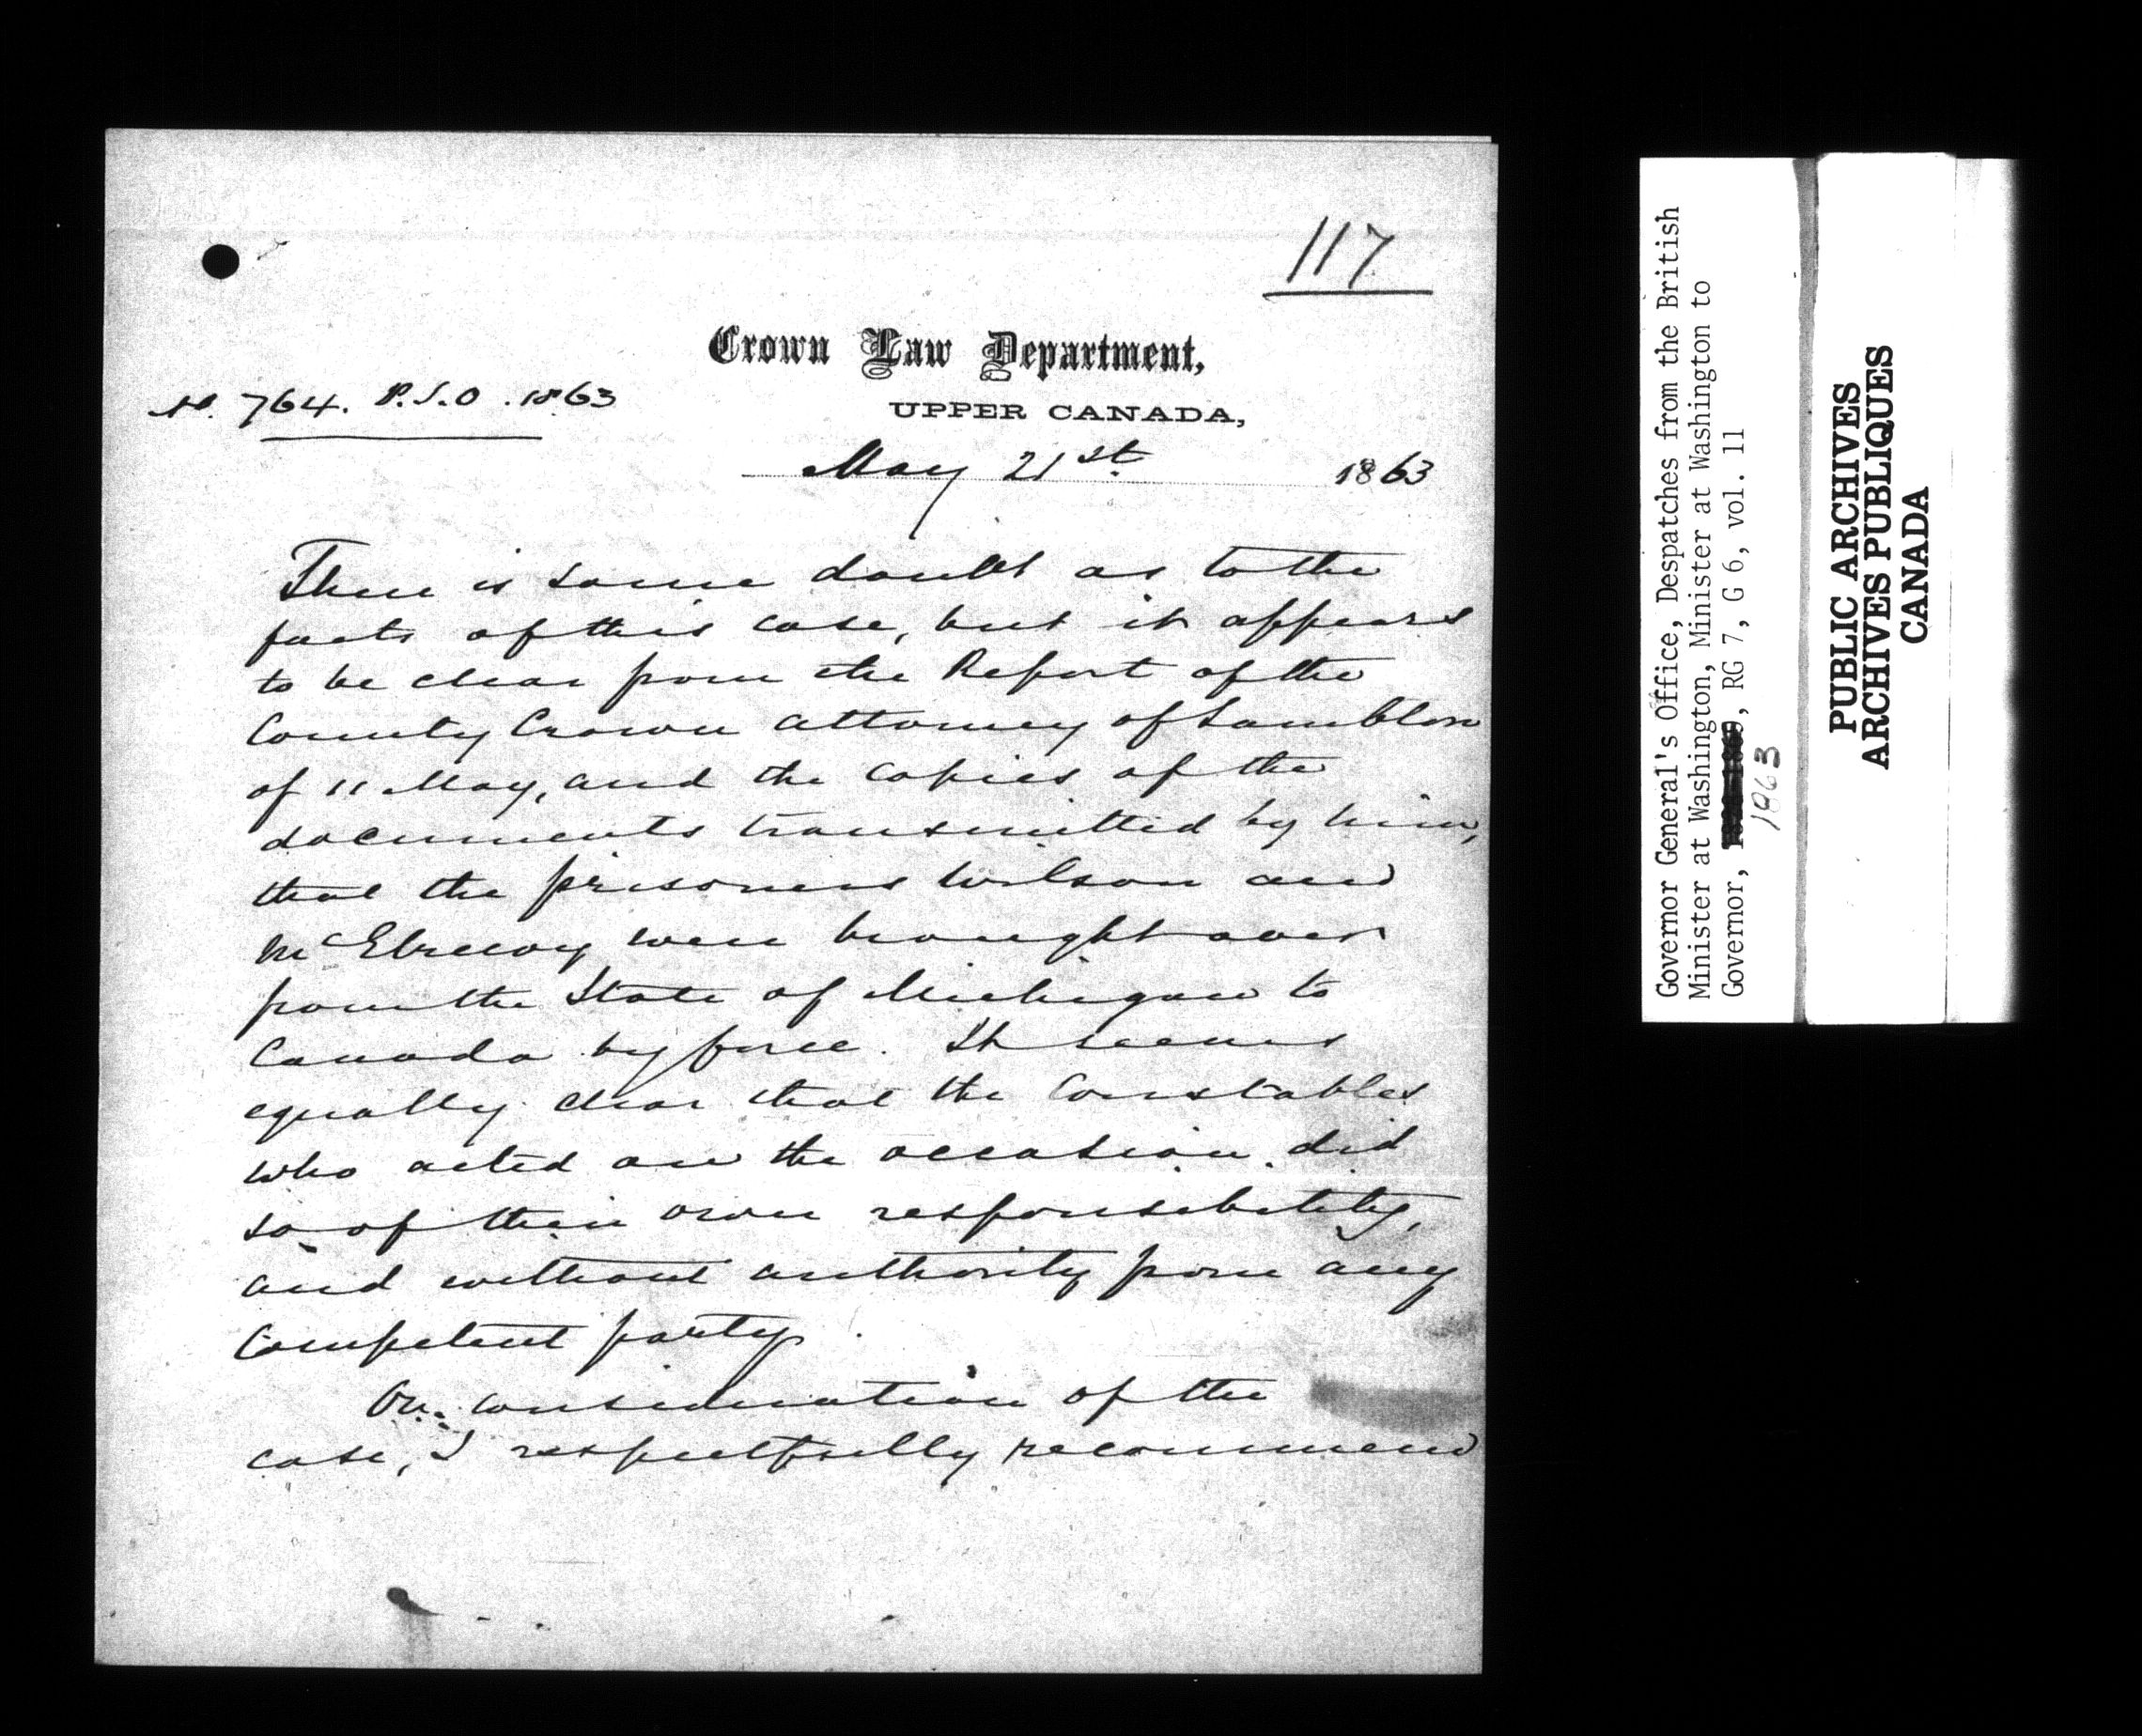 117
Crown Law Department,
No. 764. P.S.O. 1863
UPPER CANADA,
May 21st 1863
There is some doubt as to the
facts of this case, but it appears
to be clear from the Report of the
County Crown Attorney of Lambton
of 11 May, and the copies of the
documents transmitted by him,
that the prisoners Wilson and
were brought over
from the State of Michigan to
Canada by force. It seems
equally clear that the Constables
who acted on the occasion did
so of their own responsibility,
and without authority from any
Competent party.
On consideration of the
case, I respectfully recommend
Governor General's Office, Despatches from the British
Minister at Washington, Minister at Washington to
Governor, RG 7, G 6, vol. 11
1863
PUBLIC ARCHIVES
ARCHIVES PUBLIQUES
CANADA